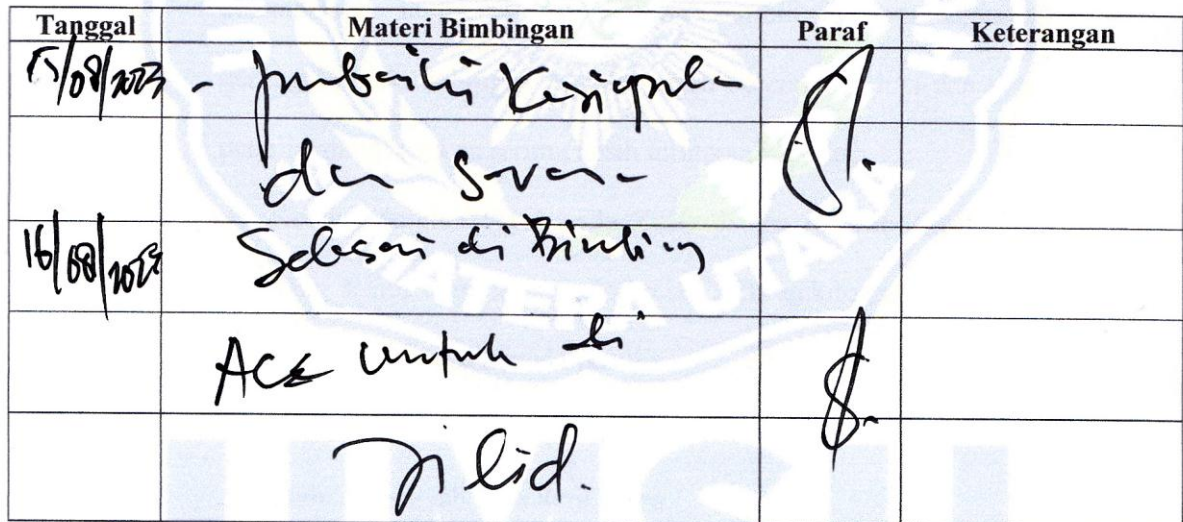 Tanggal Materi Bimbingan Paraf Keterangan
15/08/2023 - perbaiki Kesimpulan
dan saran
16/08/2023 Selesai di Bimbing
Acc untuk di
Jilid.
SUMATERA UTARA
UMSU